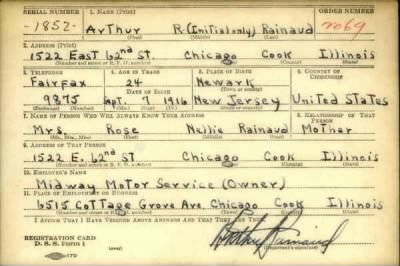 SERIAL NUMBER 1. NAME (Print) ORDER NUMBER
-1852- Arthur R.(Initial only) Rainaud 2069
(First) (Middle) (Last)
2. ADDRESS (Print)
1522 East 62nd St. Chicago Cook Illinois
(Number and street or R. F. D. number) (Town) (County) (State)
3. TELEPHONE 4. AGE IN YEARS 5. PLACE OF BIRTH 6. COUNTRY OF CITIZENSHIP
Fairfax 24 Newark
DATE OF BIRTH (Town or county)
9875 Sept. 7 1916 New Jersey United States
(Exchange) (Number) (Mo.) (Day) (Yr.) (State or country)
7. NAME OF PERSON WHO WILL ALWAYS KNOW YOUR ADDRESS 8. RELATIONSHIP OF THAT PERSON
Mrs. Rose Nellie Rainaud Mother
(Mr., Mrs., Miss) (First) (Middle) (Last)
9. ADDRESS OF THAT PERSON
1522 E. 62nd St Chicago Cook Illinois
(Number and street or R. F. D. number) (Town) (County) (State)
10. EMPLOYER'S NAME
Midway Motor Service (Owner)
11. PLACE OF EMPLOYMENT OR BUSINESS
6515 Cottage Grove Ave. Chicago Cook Illinois
(Number and street or R. F. D. number) (Town) (County) (State)
I AFFIRM THAT I HAVE VERIFIED ABOVE ANSWERS AND THAT THEY ARE TRUE.
REGISTRATION CARD
D. S. S. Form 1 Arthur Rainaud
(Registrant's signature)